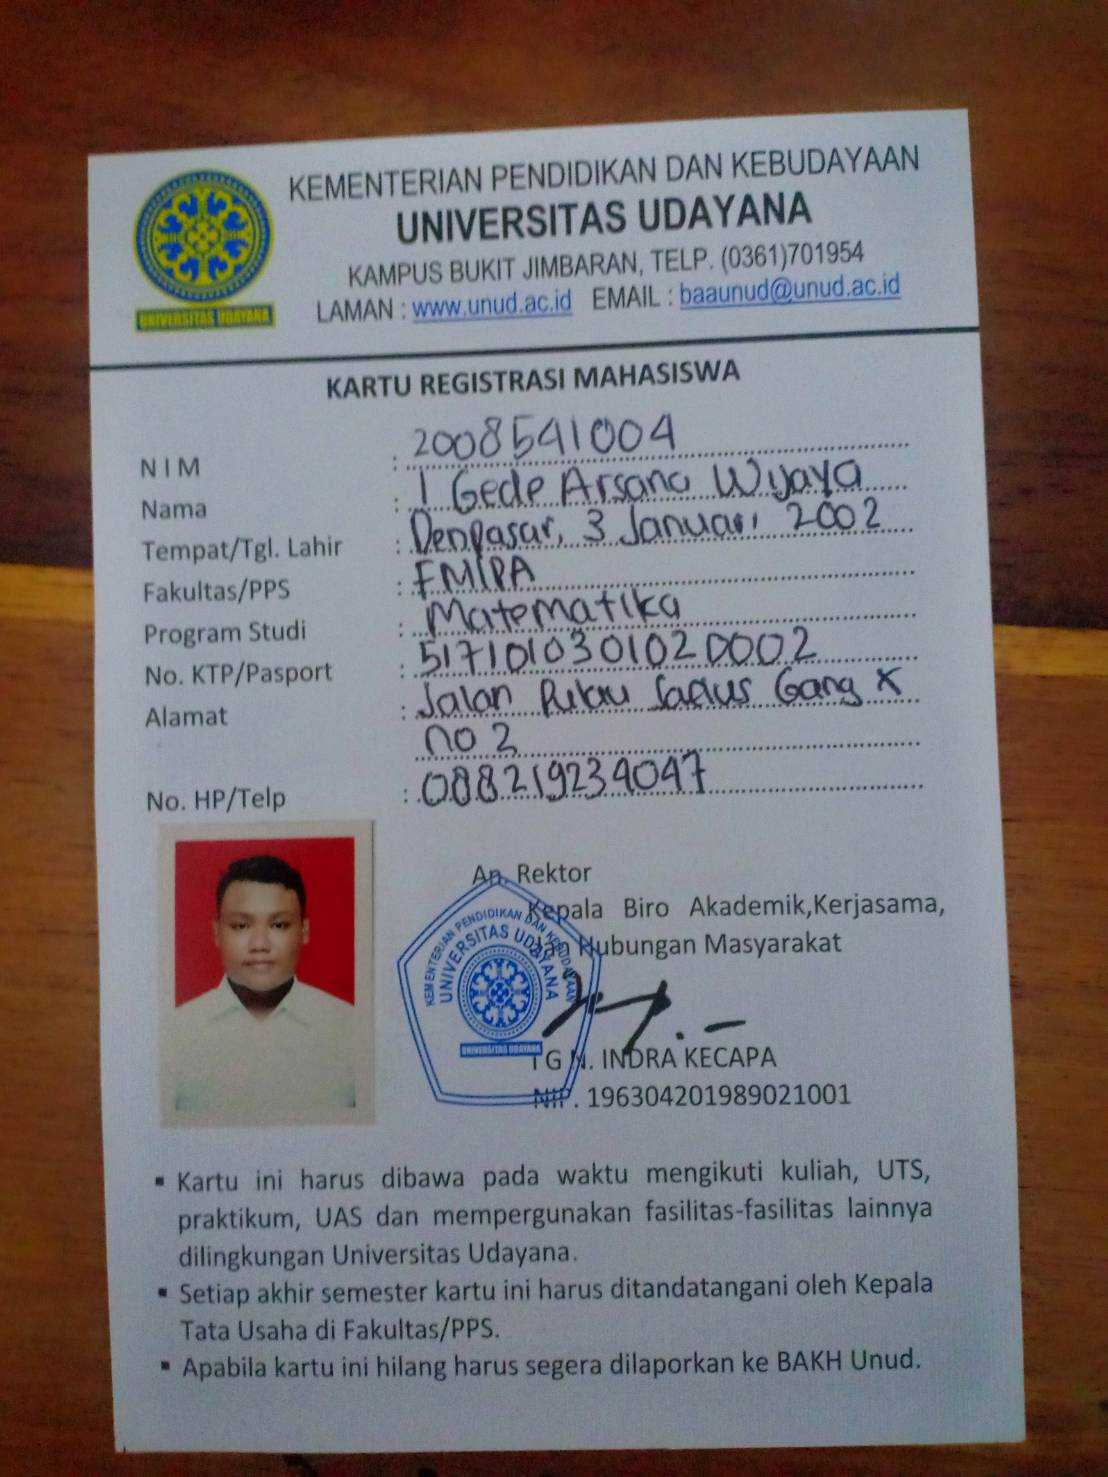 KEMENTERIAN PENDIDIKAN DAN KEBUDAYAAN
UNIVERSITAS UDAYANA
KAMPUS BUKIT JIMBARAN, TELP. (0361)701954
LAMAN : www.unud.ac.id EMAIL : baaunud@unud.ac.id
UNIVERSITAS UDAYANA
KARTU REGISTRASI MAHASISWA
N I M : 2008541004
Nama : I Gede Arsana Wijaya
Tempat/Tgl. Lahir : Denpasar, 3 Januari 2002
Fakultas/PPS : FMIPA
Program Studi : Matematika
No. KTP/Pasport : 5171010301020002
Alamat : Jalan Pulau Gang X
no 2
No. HP/Telp : 088219234047
An. Rektor
Kepala Biro Akademik,Kerjasama,
Hubungan Masyarakat
KEMENTERIAN PENDIDIKAN DAN KEBUDAYAAN
UNIVERSITAS UDAYANA
UNIVERSITAS UDAYANA
I G N. INDRA KECAPA
NIP. 196304201989021001
▪ Kartu ini harus dibawa pada waktu mengikuti kuliah, UTS,
praktikum, UAS dan mempergunakan fasilitas-fasilitas lainnya
dilingkungan Universitas Udayana.
▪ Setiap akhir semester kartu ini harus ditandatangani oleh Kepala
Tata Usaha di Fakultas/PPS.
▪ Apabila kartu ini hilang harus segera dilaporkan ke BAKH Unud.